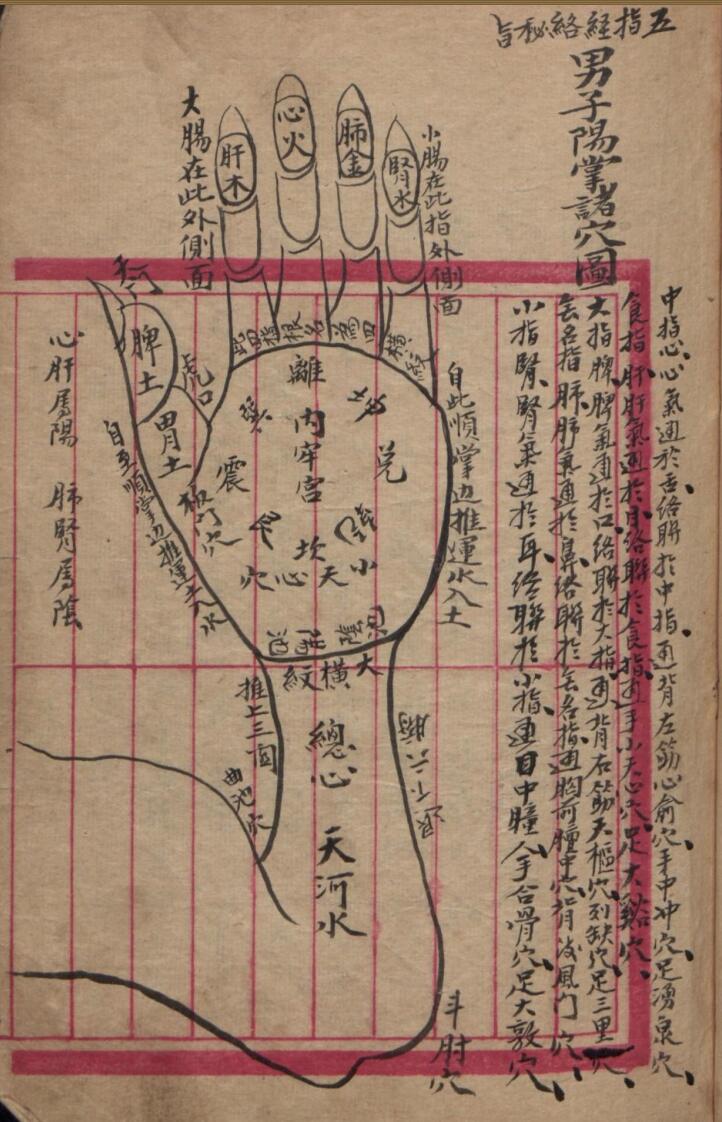 五指經絡秘旨
男子陽掌諸穴圖
中指心、心氣通於舌絡聯於中指通背左筋心俞穴手中冲穴足湧泉穴、
食指肝、肝氣通於目絡聯於食指通手小天心穴、足大谿穴、
大指脾、脾氣通於口絡聯於大指通背右筋天樞穴列缺穴足三里穴、
無名指肺、肺氣通於鼻絡聯於無名指通胸前膻中穴背後風門穴、
小指腎、腎氣通於耳絡聯於小指通目中瞳人手合骨穴、足大敦穴、
小腸在此指外側面
腎水
肺金
心火
肝木
大腸在此外側面
此四指根名為四橫紋
自此順掌边推運水入土
離
巽
內牢宮
兌
震
坎
小天心穴
虎口
脾土
胃土
板门穴
自此順掌边推運土入水
心肝属陽 肺腎属陰
大橫紋
總心
天河水
推上三関
曲池穴
斗肘穴